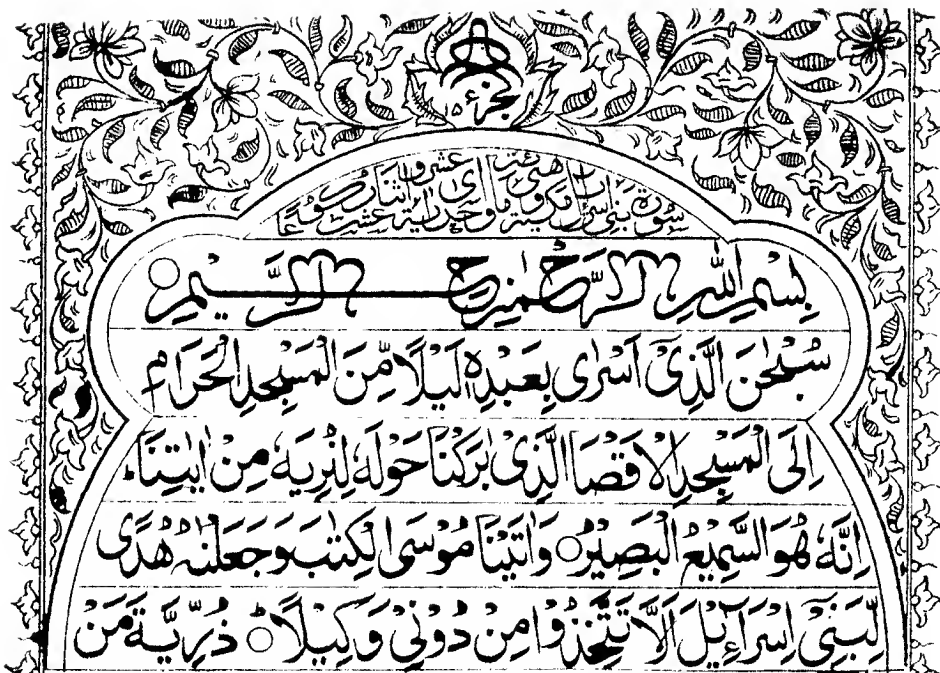 الجزء ١٥
سورة بنی اسرآءیل مکیة وھی مائة واحدی عشرة اٰیة واثنا عشر رکوعًا
بِسْمِ اللّٰهِ الرَّحْمٰنِ الرَّحِیْمِ
سُبْحٰنَ الَّذِیْۤ اَسْرٰی بِعَبْدِهٖ لَیْلًا مِّنَ الْمَسْجِدِ الْحَرَامِ
اِلَی الْمَسْجِدِ الْاَقْصَا الَّذِیْ بٰرَكْنَا حَوْلَهٗ لِنُرِیَهٗ مِنْ اٰیٰتِنَا
اِنَّهٗ هُوَ السَّمِیْعُ الْبَصِیْرُ وَاٰتَیْنَا مُوْسَی الْكِتٰبَ وَجَعَلْنٰهُ هُدًی
لِّبَنِیْۤ اِسْرَآءِیْلَ اَلَّا تَتَّخِذُوْا مِنْ دُوْنِیْ وَكِیْلًا ذُرِّیَّةَ مَنْ